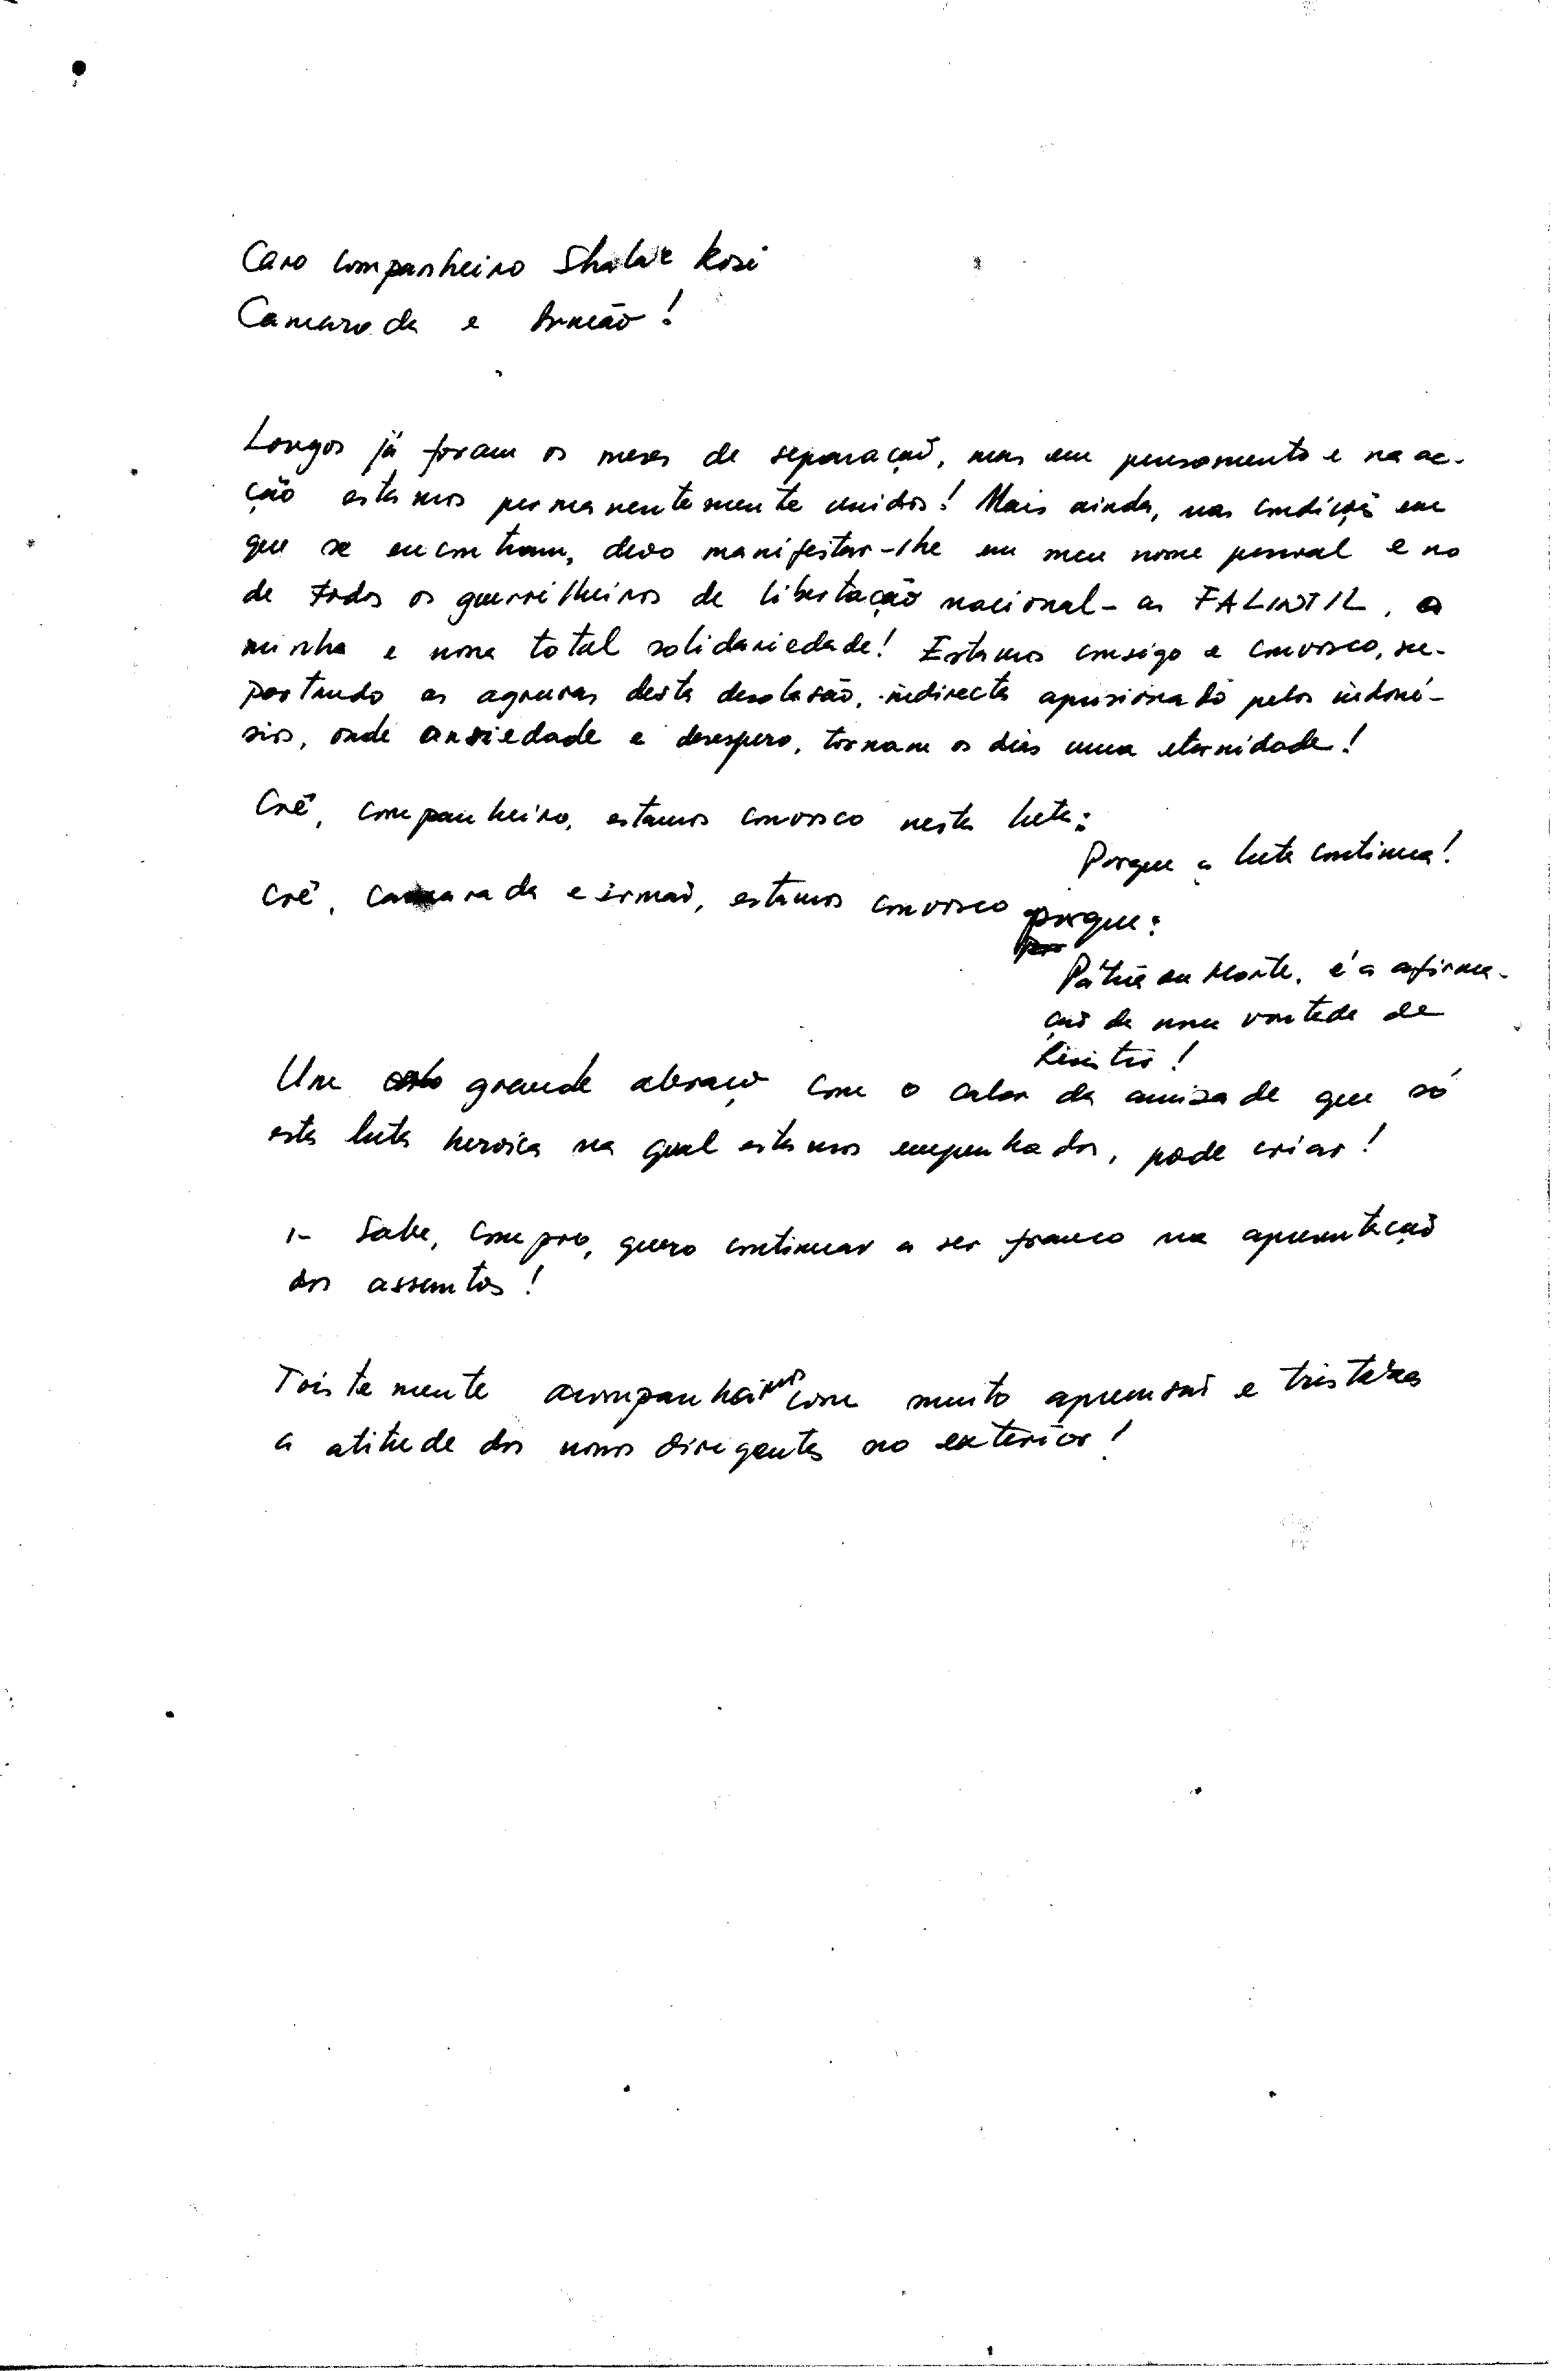 Caro companheiro Shalar Kosi
Camarada e Irmão!
Longos já foram os meses de separação, mas em pensamento e na ac-
ção estamos permanentemente unidos! Mais ainda, nas condições em
que se encontram, devo manifestar-lhe em meu nome pessoal e no
de todos os guerrilheiros de libertação nacional - as FALINTIL, a
minha e nossa total solidariedade! Estamos consigo e convosco, su-
portando as agruras desta desolação, indirecta aprisionado pelos indoné-
sios, onde ansiedade e desespero, tornam os dias uma eternidade!
Crê, companheiro, estamos convosco nesta luta:
Porque a luta continua!
Crê, camarada e irmão, estamos convosco porque:
Pátria ou Morte, é a afirma-
ção da nossa vontade de
Resistir!
Um grande abraço com o calor da amizade que só
esta luta heroica na qual estamos empenhados, pode criar!
1- Sabe, compro, quero continuar a ser franco na apresentação
dos assuntos!
Tristemente acompanhámos com muito apreensão e tristeza
a atitude dos nossos dirigentes no exterior!